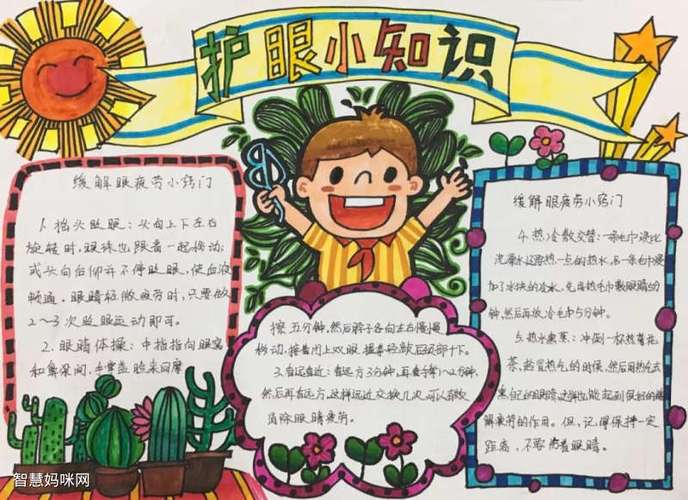 护眼小知识
缓解眼疲劳小窍门
1. 抬头眨眼：头向上下左右
旋转时，眼珠也跟着一起移动；
或头向后仰并不停眨眼，使血液
畅通。眼睛轻微疲劳时，只要做
2～3次眨眼运动即可。
2. 眼睛体操：中指指向眼窝
和鼻梁间，手掌盖脸来回摩
擦五分钟，然后脖子各向左右慢慢
移动，接着闭上双眼，握拳轻敲后颈部十下。
3. 看远看近：看远方3分钟，再看手掌1～2分钟，
然后再看远方，这样远近交换几次，可以有效
消除眼睛疲劳。
缓解眼疲劳小窍门
4. 热冷敷交替：一条毛巾浸比
洗澡水还要热一点的热水，另一条毛巾浸
加了冰块的冷水，先用热毛巾敷眼睛约
分钟，然后再放冷毛巾5分钟。
5. 热水熏蒸：冲倒一杯热菊花
茶，趁冒热气的时候，然后用热气去
熏自己的眼睛，这样也能起到很好的缓
解疲劳的作用。但，记得保持一定
距离，不要烫着眼睛。
智慧妈咪网